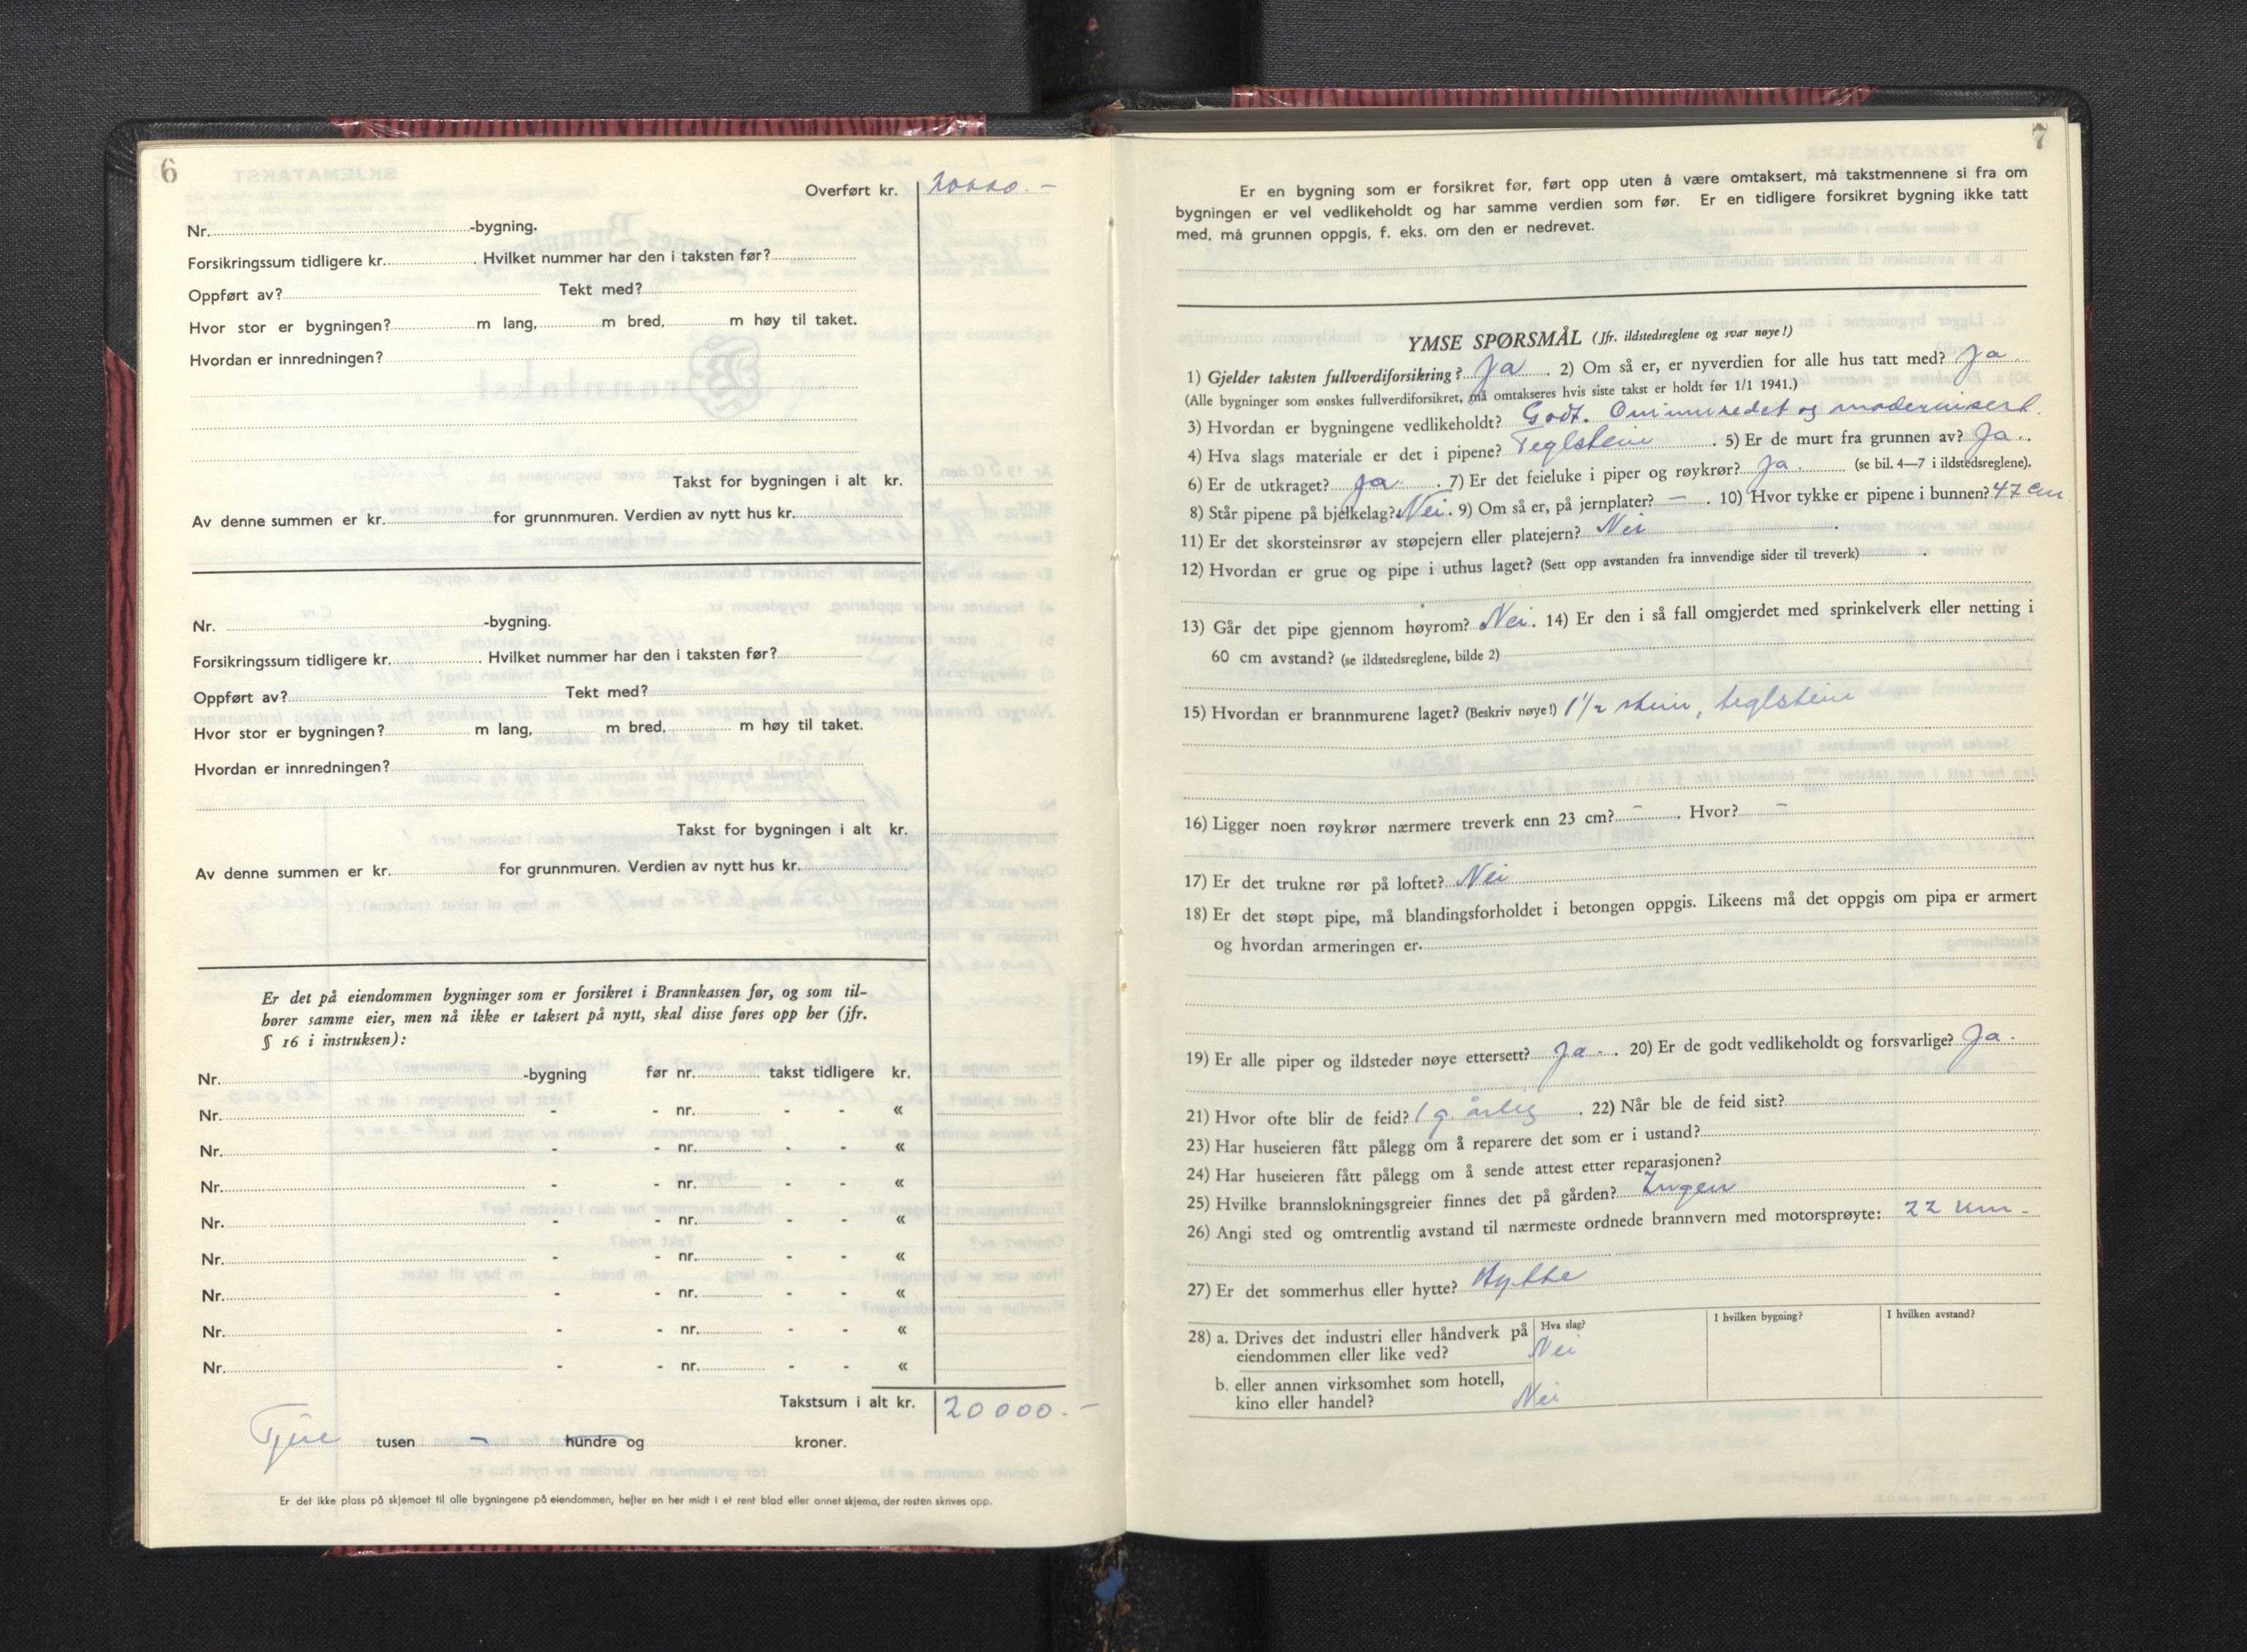 6
Overført kr. 20000.-
Nr. -bygning.
Forsikringssum tidligere kr. . Hvilket nummer har den i taksten før?
Oppført av? Tekt med?
Hvor stor er bygningen? m lang, m bred, m høy til taket.
Hvordan er innredningen?
Takst for bygningen i alt kr.
Av denne summen er kr. for grunnmuren. Verdien av nytt hus kr.
Nr. -bygning.
Forsikringssum tidligere kr. . Hvilket nummer har den i taksten før?
Oppført av? Tekt med?
Hvor stor er bygningen? m lang, m bred, m høy til taket.
Hvordan er innredningen?
Takst for bygningen i alt kr.
Av denne summen er kr. for grunnmuren. Verdien av nytt hus kr.
Er det på eiendommen bygninger som er forsikret i Brannkassen før, og som til-
hører samme eier, men nå ikke er taksert på nytt, skal disse føres opp her (jfr.
§ 16 i instruksen):
Nr. -bygning før nr. takst tidligere kr.
Nr. - - nr. - - «
Nr. - - nr. - - «
Nr. - - nr. - - «
Nr. - - nr. - - «
Nr. - - nr. - - «
Nr. - - nr. - - «
Nr. - - nr. - - «
Nr. - - nr. - - «
Takstsum i alt kr. 20000.-
Tjue tusen - hundre og kroner.
Er det ikke plass på skjemaet til alle bygningene på eiendommen, hefter en her midt i et rent blad eller annet skjema, der resten skrives opp.
7
Er en bygning som er forsikret før, ført opp uten å være omtaksert, må takstmennene si fra om
bygningen er vel vedlikeholdt og har samme verdien som før. Er en tidligere forsikret bygning ikke tatt
med, må grunnen oppgis, f. eks. om den er nedrevet.
YMSE SPØRSMÅL (Jfr. ildstedsreglene og svar nøye!)
1) Gjelder taksten fullverdiforsikring? Ja . 2) Om så er, er nyverdien for alle hus tatt med? Ja
(Alle bygninger som ønskes fullverdiforsikret, må omtakseres hvis siste takst er holdt før 1/1 1941.)
3) Hvordan er bygningene vedlikeholdt? Godt. Ominnredet og modernisert.
4) Hva slags materiale er det i pipene? Teglstein . 5) Er de murt fra grunnen av? Ja.
6) Er de utkraget? Ja . 7) Er det feieluke i piper og røykrør? Ja. (se bil. 4—7 i ildstedsreglene).
8) Står pipene på bjelkelag? Nei. 9) Om så er, på jernplater? - . 10) Hvor tykke er pipene i bunnen? 47 cm
11) Er det skorsteinsrør av støpejern eller platejern? Nei .
12) Hvordan er grue og pipe i uthus laget? (Sett opp avstanden fra innvendige sider til treverk) .
13) Går det pipe gjennom høyrom? Nei. 14) Er den i så fall omgjerdet med sprinkelverk eller netting i
60 cm avstand? (se ildstedsreglene, bilde 2)
15) Hvordan er brannmurene laget? (Beskriv nøye!) 1 1/2 stein, teglstein
16) Ligger noen røykrør nærmere treverk enn 23 cm? - . Hvor? -
17) Er det trukne rør på loftet? Nei
18) Er det støpt pipe, må blandingsforholdet i betongen oppgis. Likeens må det oppgis om pipa er armert
og hvordan armeringen er.
19) Er alle piper og ildsteder nøye ettersett? Ja - . 20) Er de godt vedlikeholdt og forsvarlige? Ja -
21) Hvor ofte blir de feid? 1 g. årlig . 22) Når ble de feid sist?
23) Har huseieren fått pålegg om å reparere det som er i ustand?
24) Har huseieren fått pålegg om å sende attest etter reparasjonen?
25) Hvilke brannslokningsgreier finnes det på gården? Ingen
26) Angi sted og omtrentlig avstand til nærmeste ordnede brannvern med motorsprøyte: 22 km -
27) Er det sommerhus eller hytte? Hytte
28) a. Drives det industri eller håndverk på Hva slag? I hvilken bygning? I hvilken avstand?
eiendommen eller like ved? Nei
b. eller annen virksomhet som hotell,
kino eller handel? Nei